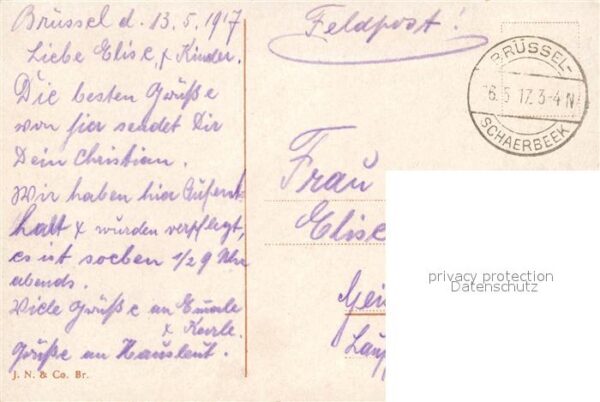 Brüssel d. 13.5.1917
Liebe Elise, x Kinder.
Die besten Grüße
von hier sendet Dir
Dein Christian.
Wir haben hier Aufent
halt x wurden verpflegt,
es ist soeben 1/2 9 Uhr
abends.
Viele Grüße an
x Karle.
Grüße an Hausleut.
J. N. & Co. Br.
Feldpost!
BRÜSSEL-
5.17. 3-4 N
SCHAERBEEK
Frau
Elise
privacy protection
Datenschutz